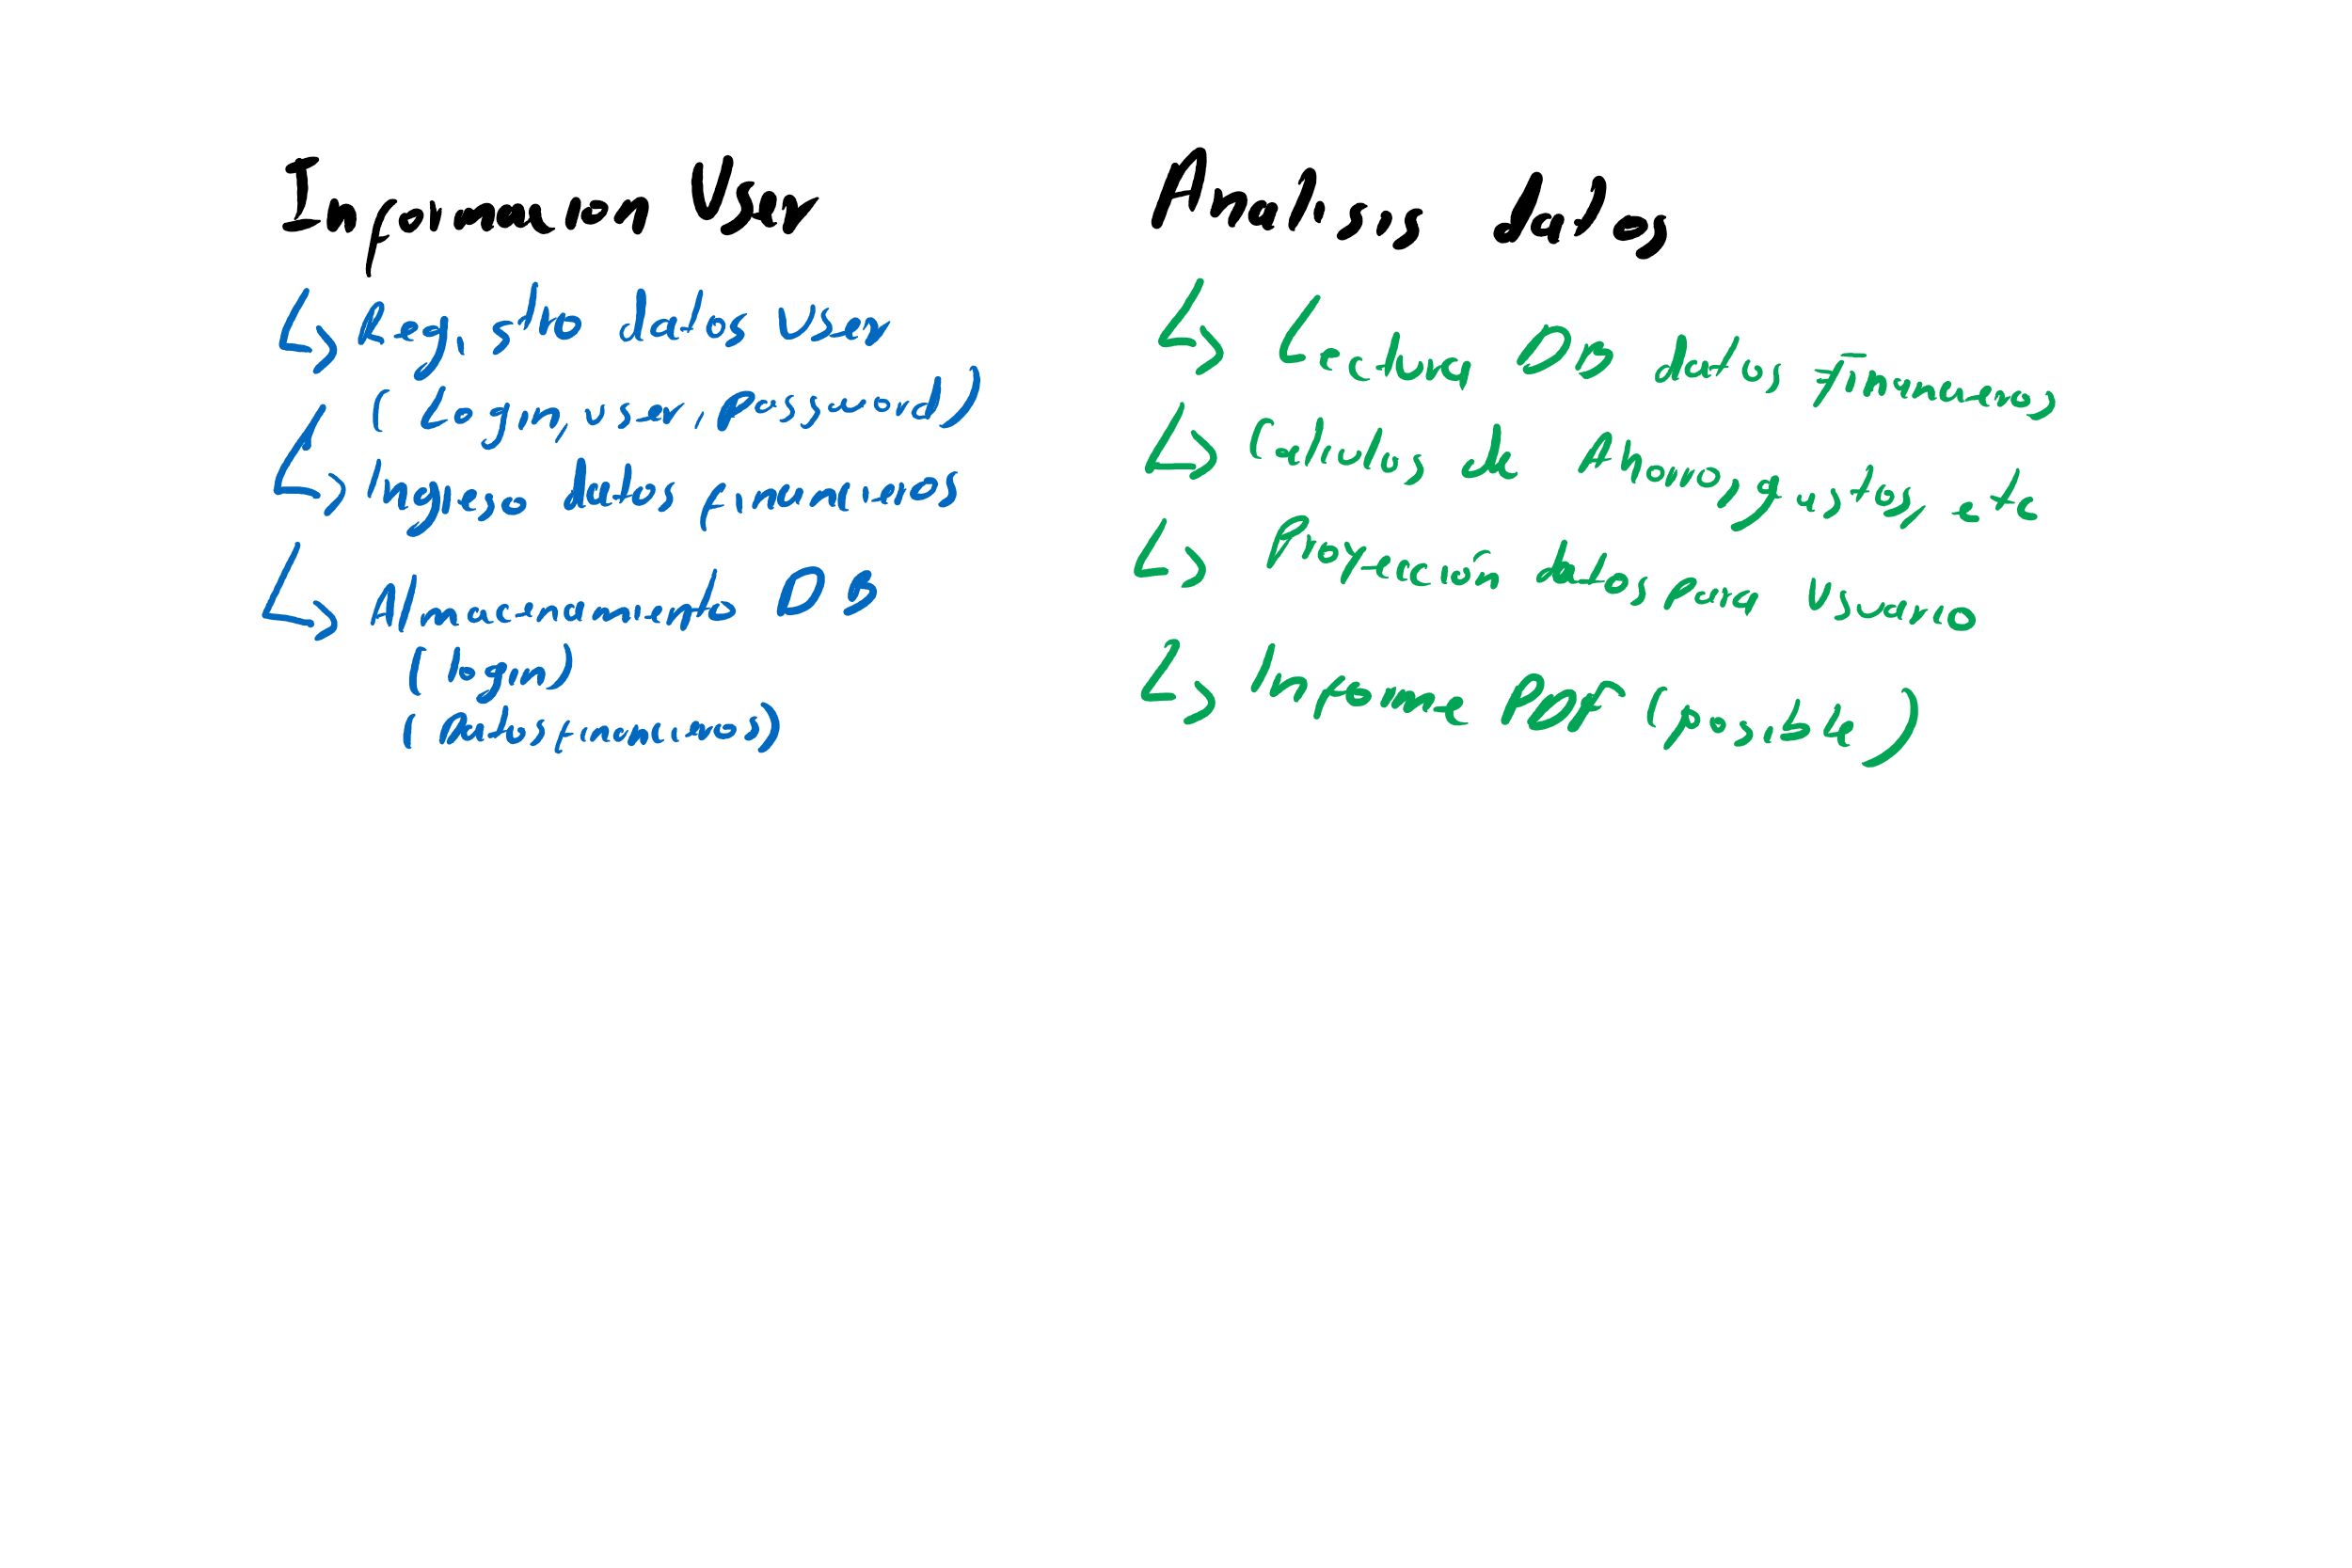 Informacion User
Registro datos User
(Login, user, Password)
Ingreso datos financieros
Almacenamiento DB
(login)
(Datos financieros)
Analisis datos
Lectura DB datos Financieros
Calculos de Ahorro, gastos, etc
Proyección datos para Usuario
Informe PDF (posible)